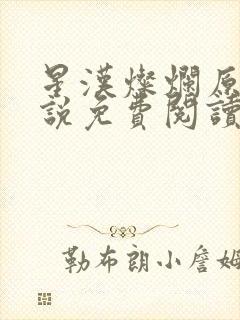 星漢燦爛原
說免費閱讀
勒布朗小詹姆